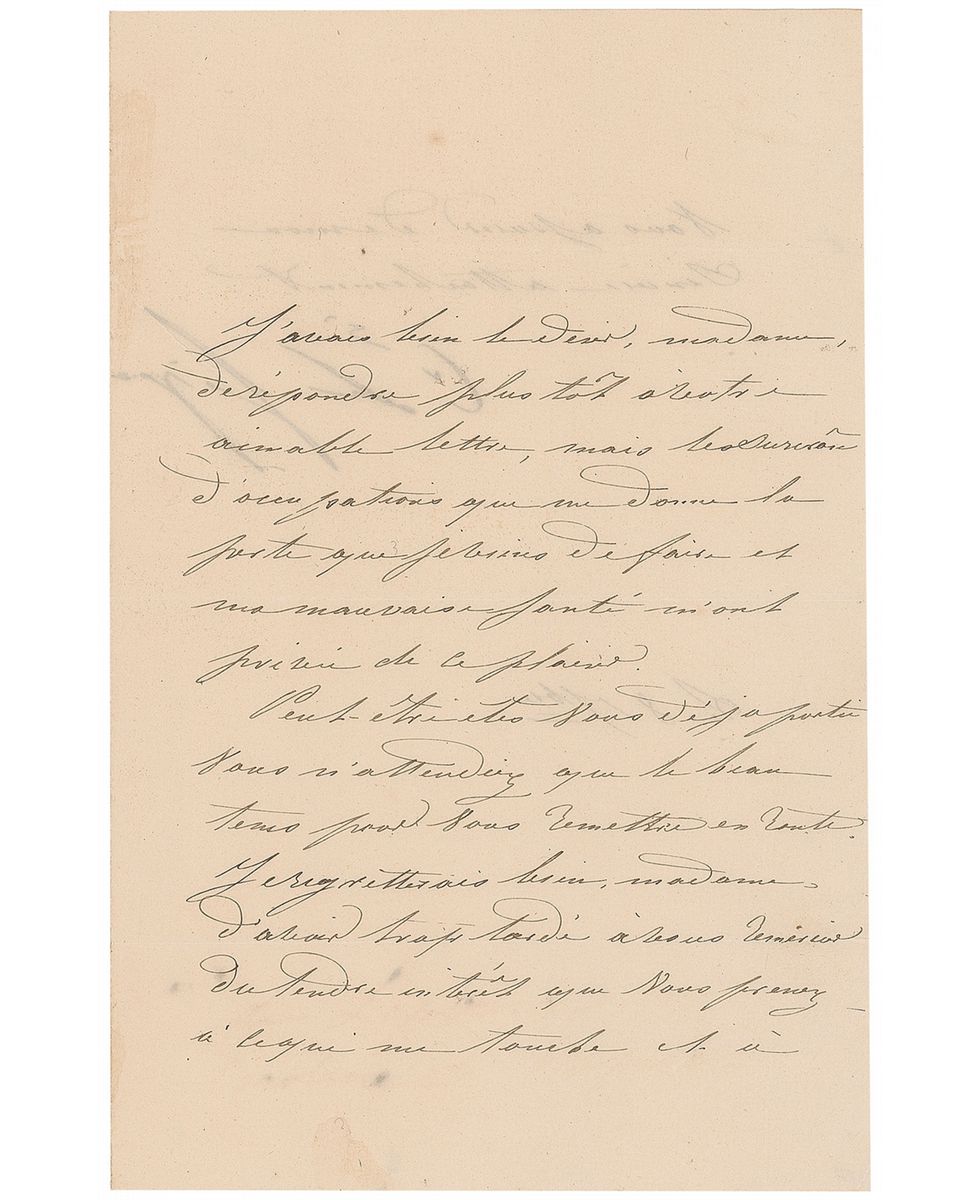 J'avais bien le désir, madame,
de répondre plus tôt à votre
aimable lettre, mais le surcroît
d'occupations que me donne la
perte que je viens de faire et
ma mauvaise santé m'ont
privée de ce plaisir.
Peut-être êtes vous déjà partie
Vous n'attendiez que le beau
tems pour Vous remettre en route.
Je regretterais bien, madame,
d'avoir trop tardé à vous remercier
du tendre intérêt que Vous prenez
à ce qui me touche et à